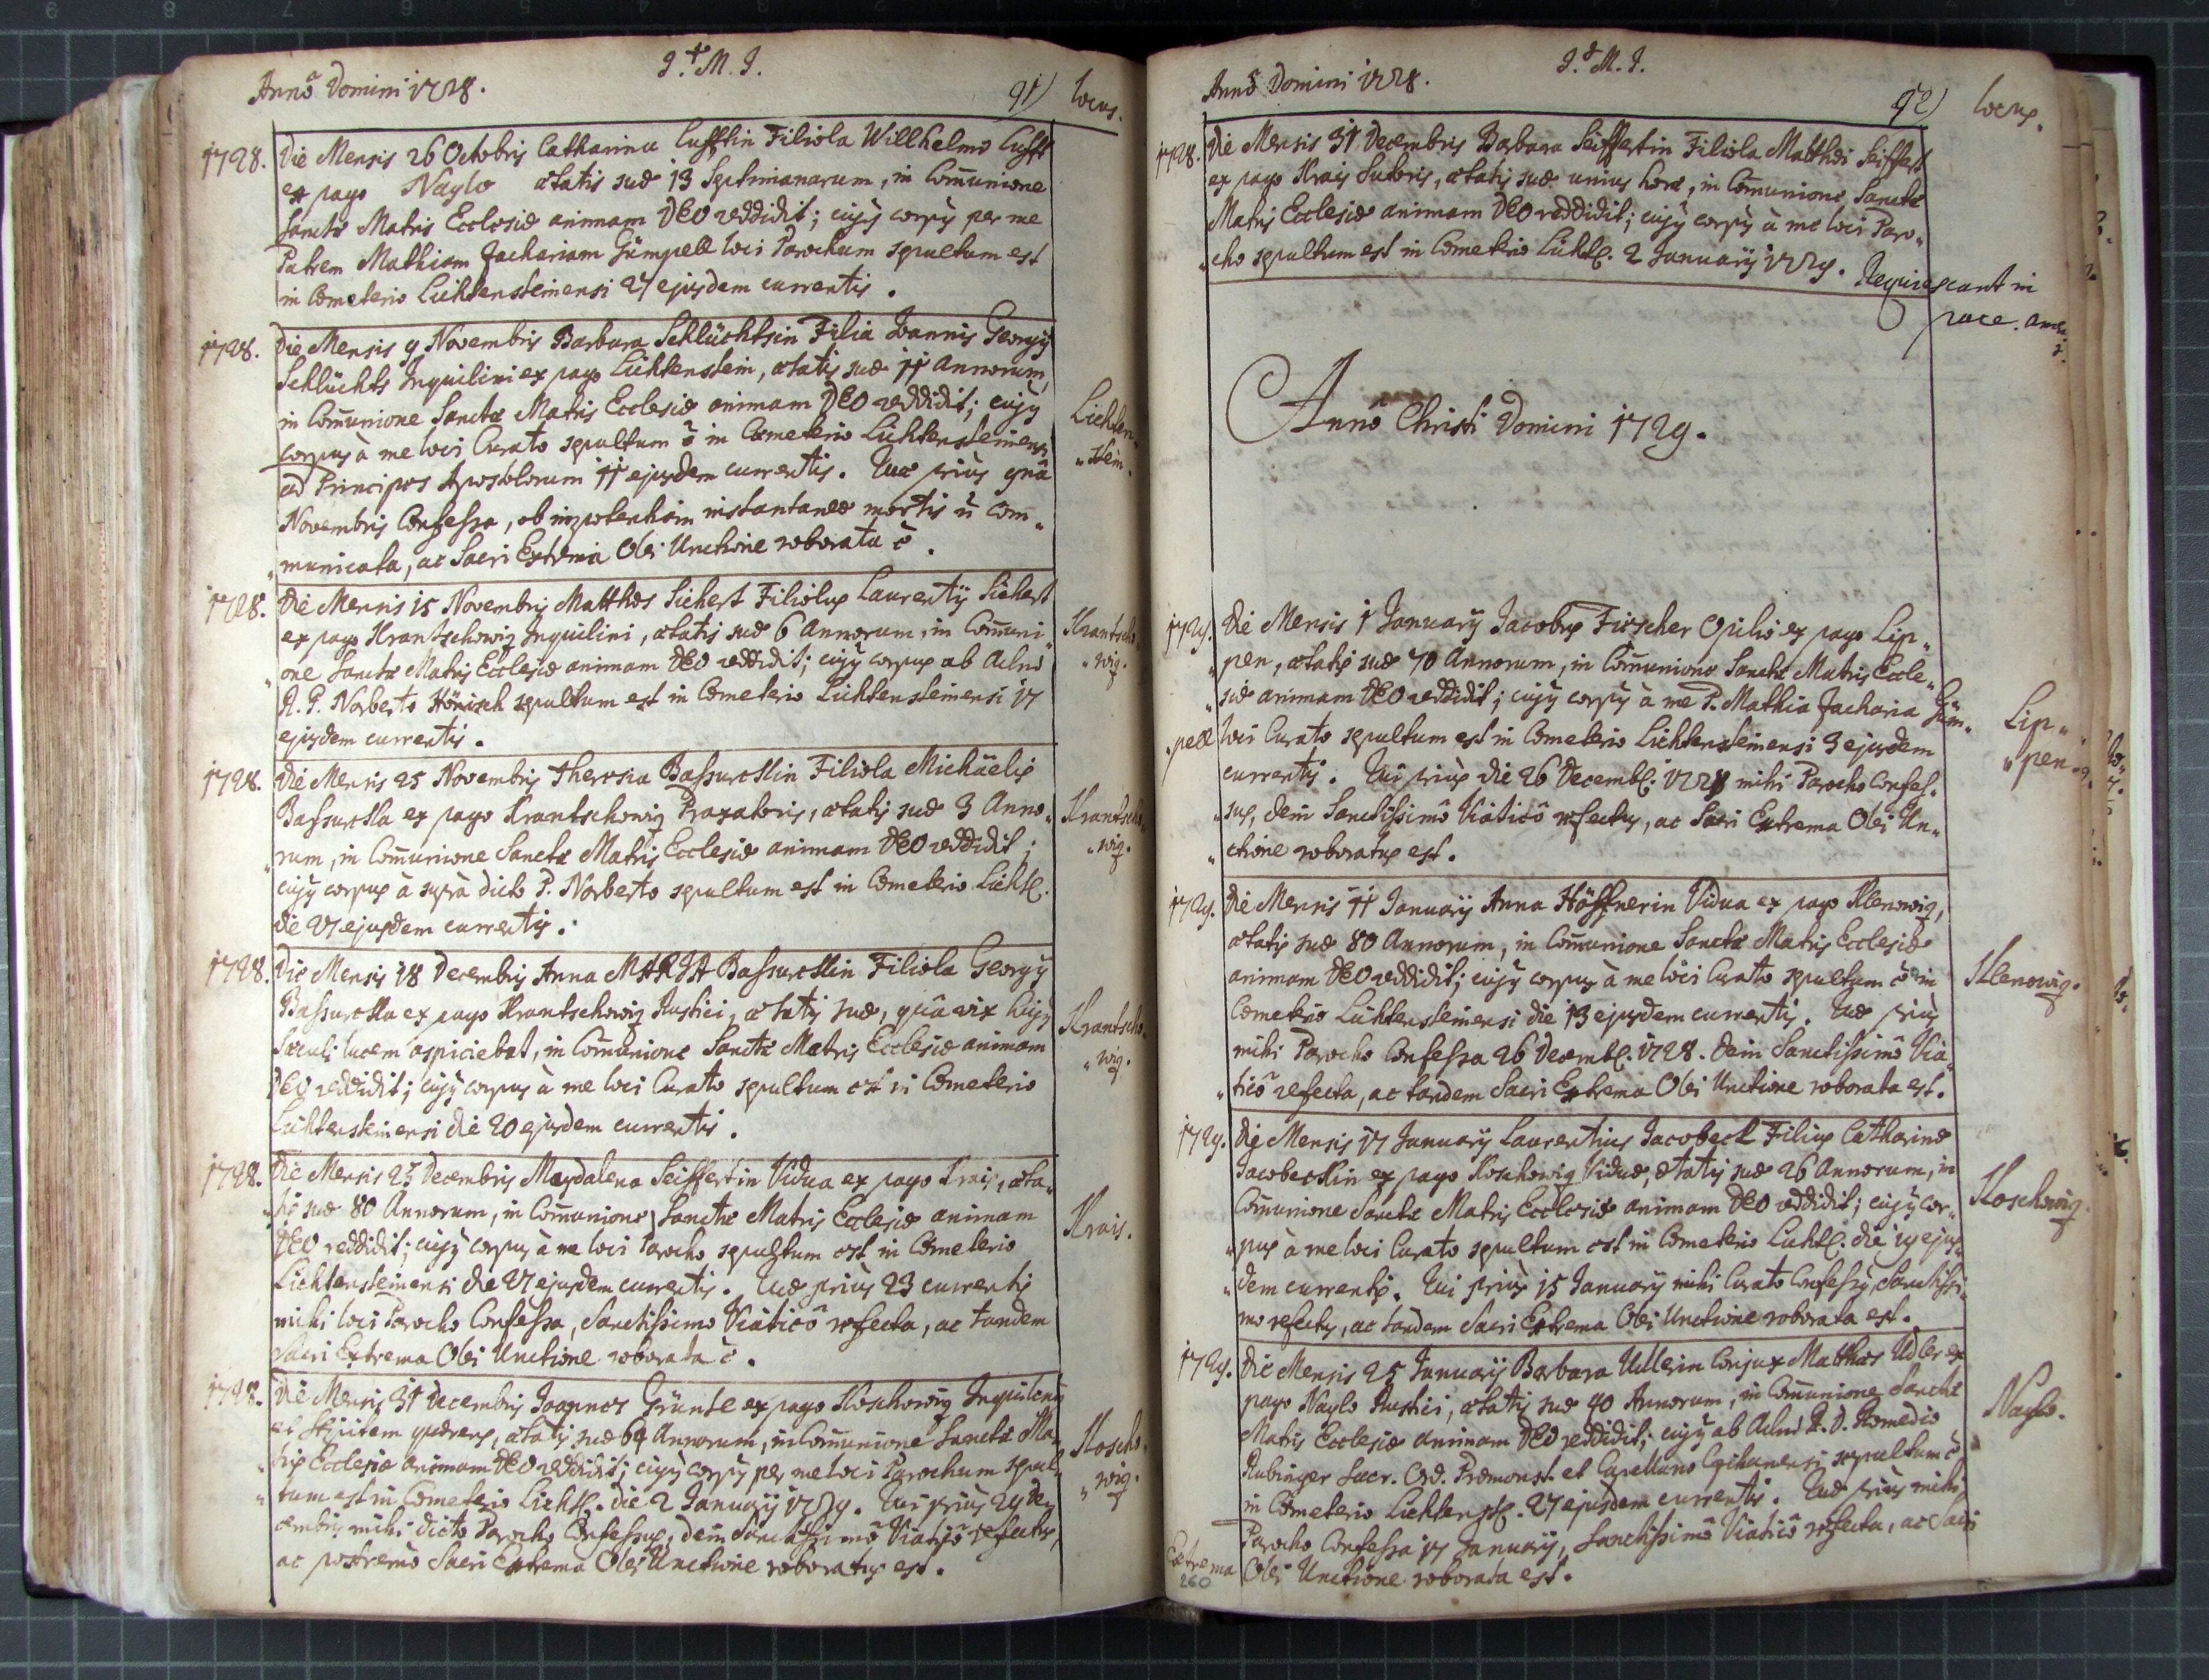 Annô Domini 1728.
J. M. J.
91)
locus.
1728.
Die Mensis 26 Octobris Catharina Lufftin Filiola Willhelmo Lufft
ex pago Naylo ætatis suæ 13 Septimanarum, in Com̄unione
Sanctæ Matris Ecclesiæ animam DEO reddidit; cujus corpus per me
Patrem Mathiam Zachariam Gümpell loci Parochum sepultum est
in Cœmeterio Lichtensteinensi 27 ejusdem currentis.
1728.
Die Mensis 9 Novembris Barbara Schlüchtsin Filia Joannis Georgij
Schlüchts Inquilini ex pago Lichtenstein, ætatis suæ 11 annorum,
in Com̄unione Sanctæ Matris Ecclesiæ animam DEO reddidit; cujus
corpus à me loci Curato sepultum ē in Cœmeterio Lichtensteinensi
ad Principes Apostolorum 11 ejusdem currentis. Quæ prius 9nâ
Novembris Confessa, ob impotentiam instantaneæ mortis ñ Com„
„municata, ac Sacri Extrema Olei Unctione roborata ē.
Lichten„
„stein.
1728.
Die Mensis 15 Novembris Matthæs Sichert Filiolus Laurentij Sichert
ex pago Krantschowiz Inquilini, ætatis suæ 6 Annorum, in Com̄uni„
„one Sanctæ Matris Ecclesiæ animam DEO reddidit; cujus corpus ab Adm̄
R. P. Norberto Hönisch sepultum est in Cœmeterio Lichtensteinensi 17
ejusdem currentis.
Krantscho„
„wiz.
1728.
Die Mensis 25 Novembris Theresia Bassureckin Filiola Michäelis
Bassurecka ex pago Krantschowiz Praxatoris, ætatis suæ 3 Anno„
„rum, in Com̄unione Sanctæ Matris Ecclesiæ animam DEO reddidit;
cujus corpus à supra dicto P. Norberto sepultum est in Cœmeterio Lichtl.
die 27 ejusdem currentis.
Krantscho„
„wiz.
1728.
Die Mensis 18 Decembris Anna MARIA Bassureckin Filiola Georgij
Bassurecka ex pago Krantschowiz Rustici, ætatis suæ, quâ vix hujus
Sæculi lucem aspiciebat, in Com̄unione Sanctæ Matris Ecclesiæ animam
DEO reddidit; cujus corpus à me loci Curato sepultum est in Cœmeterio
Lichtensteinensi die 20 ejusdem currentis.
Krantscho„
„wiz.
1728.
Die Mensis 25 Decembris Magdalena Seiffertin Vidua ex pago Krais, æta„
„tis suæ 80 Annorum, in Com̄unione Sanctæ Matris Ecclesiæ animam
DEO reddidit; cujus corpus à me loci Parocho sepultum est in Cœmeterio
Lichtensteinensi die 27 ejusdem currentis. Quæ prius 23 currentis
mihi loci Parocho Confessa, Sanctissimo Viaticô refecta, ac tandem
Sacri Extrema Olei Unctione roborata ē.
Krais.
1728.
Die Mensis 31 Decembris Joannes Grünte ex pago Koschowiz Inquilinus
et quærens, ætatis suæ 64 Annorum, in Com̄unione Sanctæ Ma„
„tris Ecclesiæ animam DEO reddidit; cujus corpus per me loci Parochum sepul„
„tum est in Cœmeterio Lichtl. die 2 Januarij 1729. Qui prius 29 De„
cembris mihi dicto Parocho Confessus, dein Sanctissimô Viaticô refectus,
ac postremò Sacri Extrema Olei Unctione roboratus est.
Koscho„
„wiz.
Annô Domini 1728.
J. M. J.
92)
locus.
1728.
Die Mensis 31 Decembris Barbara Seiffertin Filiola Matthæi Seiffert
ex pago Krais Sutoris, ætatis suæ unius horæ, in Com̄unione Sanctæ
Matris Ecclesiæ animam DEO reddidit; cujus corpus à me loci Paro„
„cho sepultum est in Cœmeterio Lichtl. 2 Januarij 1729. Requiescant in
pace. amen.
Annô Christi Domini 1729.
1729.
Die Mensis 1 Januarij Jacobus Fischer Opilio ex pago Lip„
„pen, ætatis suæ 70 Annorum, in Com̄unione Sanctæ Matris Eccle„
„siæ animam DEO reddidit; cujus corpus à me P. Mathia Zacharia Güm„
„pell loci Curato sepultum est in Cœmeterio Lichtensteinensi 3 ejusdem
currentis. Qui prius die 26 Decembl. 1728 mihi Parocho Confes„
„sus, dein Sanctissimô Viaticô refectus, ac Sacri Extrema Olei Un„
„ctione roboratus est.
Lip„
„pen.
1729.
Die Mensis 11 Januarij Anna Höffnerin Vidua ex pago Klenowiz,
ætatis suæ 80 Annorum, in Com̄unione Sanctæ Matris Ecclesiæ
animam DEO reddidit; cujus corpus à me loci Curato sepultum ē in
Cœmeterio Lichtensteinensi die 13 ejusdem currentis. Quæ prius
mihi Parocho Confessa 26 Decembl. 1728. dein Sanctissimô Via„
„ticô refecta, ac tandem Sacri Extrema Olei Unctione roborata est.
Klenowiz.
1729.
Die Mensis 17 Januarij Laurentius Jacobeck Filius Catharinæ
Jacobeckin ex pago Koschowiz Viduæ, ætatis suæ 26 Annorum, in
Com̄unione Sanctæ Matris Ecclesiæ animam DEO reddidit; cujus cor„
„pus à me loci Curato sepultum est in Cœmeterio Lichtl. die 19 ejus„
„dem currentis. Qui prius 15 Januarij mihi Curato Confessus, Sanctissi„
mo refectus, ac tandem Sacri Extrema Olei Unctione roborata est.
Koschowiz.
1729.
Die Mensis 25 Januarij Barbara Udlerin Conjux Matthæs Udler ex
pago Naylo Rustici, ætatis suæ 40 Annorum, in Com̄unione Sanctæ
Matris Ecclesiæ animam DEO reddidit; cujus ab Adm̄ R. D. Romedio
Rubinger Sacr. Ord. Præmonst. et Capellano sepultum ē
in Cœmeterio Lichtenstl. 27 ejusdem currentis. Quæ prius mihi
Parocho Confessa 17 Januarij, Sanctissimô Viaticô refecta, ac Sacri
Extrema Olei Unctione roborata est.
Naylo.
260